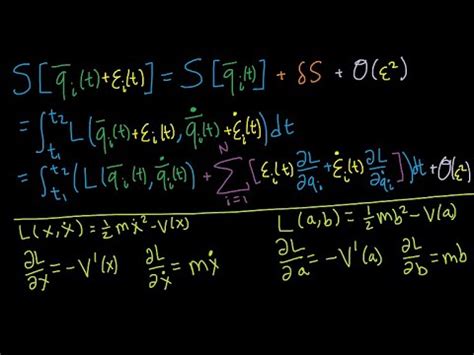 S[q̄ᵢ(t)+εᵢ(t)] = S[q̄ᵢ(t)] + δS + O(ε²)
= ∫_{t₁}^{t₂} L(q̄ᵢ(t)+εᵢ(t), q̄̇ᵢ(t)+ε̇ᵢ(t))dt
= ∫_{t₁}^{t₂} (L(q̄ᵢ(t), q̄̇ᵢ(t)) + Σ_{i=1}^{N} [εᵢ(t) ∂L/∂qᵢ + ε̇ᵢ(t) ∂L/∂q̇ᵢ])dt + O(ε²)
L(x,ẋ) = ½mẋ² − V(x)
∂L/∂x = −V'(x) ∂L/∂ẋ = mẋ
L(a,b) = ½mb² − V(a)
∂L/∂a = −V'(a) ∂L/∂b = mb